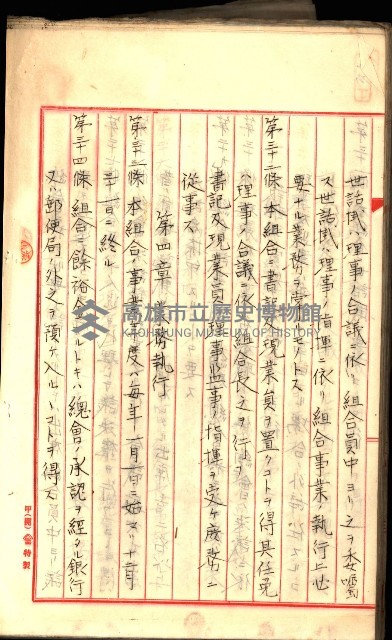 世話係ハ理事ノ合議ニ依リ組合員中ヨリ之ヲ委嘱
ス世話係ハ理事ノ指揮ニ依リ組合事業ノ執行上必
要ナル業務ヲ掌ルモノトス
第三十二條 本組合ニ書記及現業員ヲ置クコトヲ得其任免
ハ理事ノ合議ニ依リ組合長之ヲ行フ
書記及現業員ハ理事監事ノ指揮ヲ受ケ庶務ニ
從事ス
第四章 業務執行
第三十三條 本組合ノ事業年度ハ毎年一月一日ニ始マリ十二月
三十一日ニ終ル
第三十四條 組合ニ餘裕金アルトキハ總會ノ承認ヲ經タル銀行
又ハ郵便局外之ヲ預ケ入ルヽコトヲ得ス
特製
高雄市立歷史博物館
KAOHSIUNG MUSEUM OF HISTORY